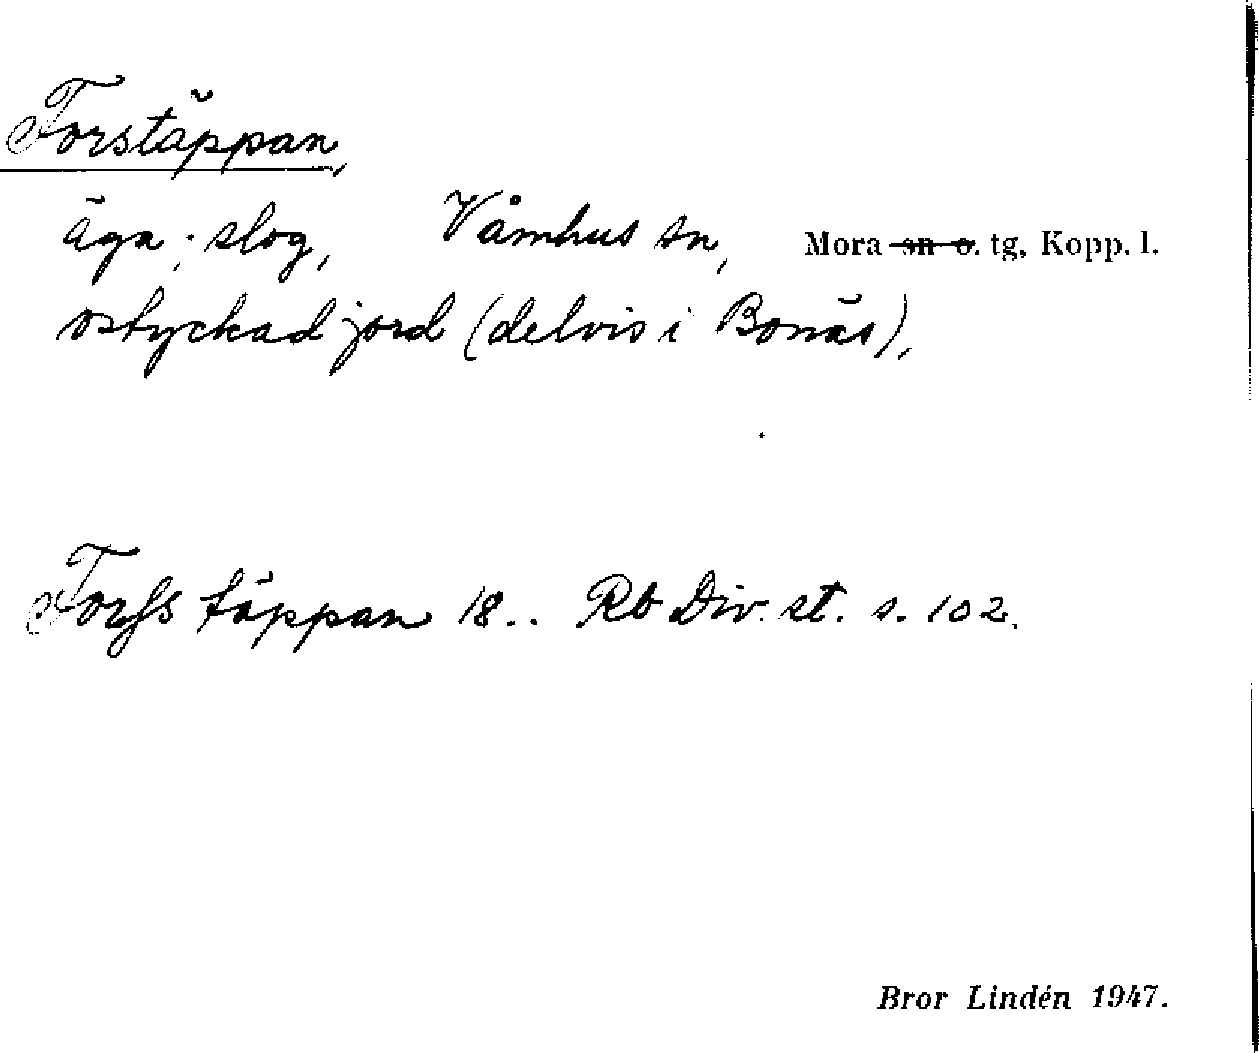 Forstäppan,
äga; slog, Våmhus sn, Mora sn o. tg, Kopp. l.
ostyckad jord (delvis i Bonäs),
Forſs täppan 18.. Rb Div. st. s. 102.
Bror Lindén 1947.